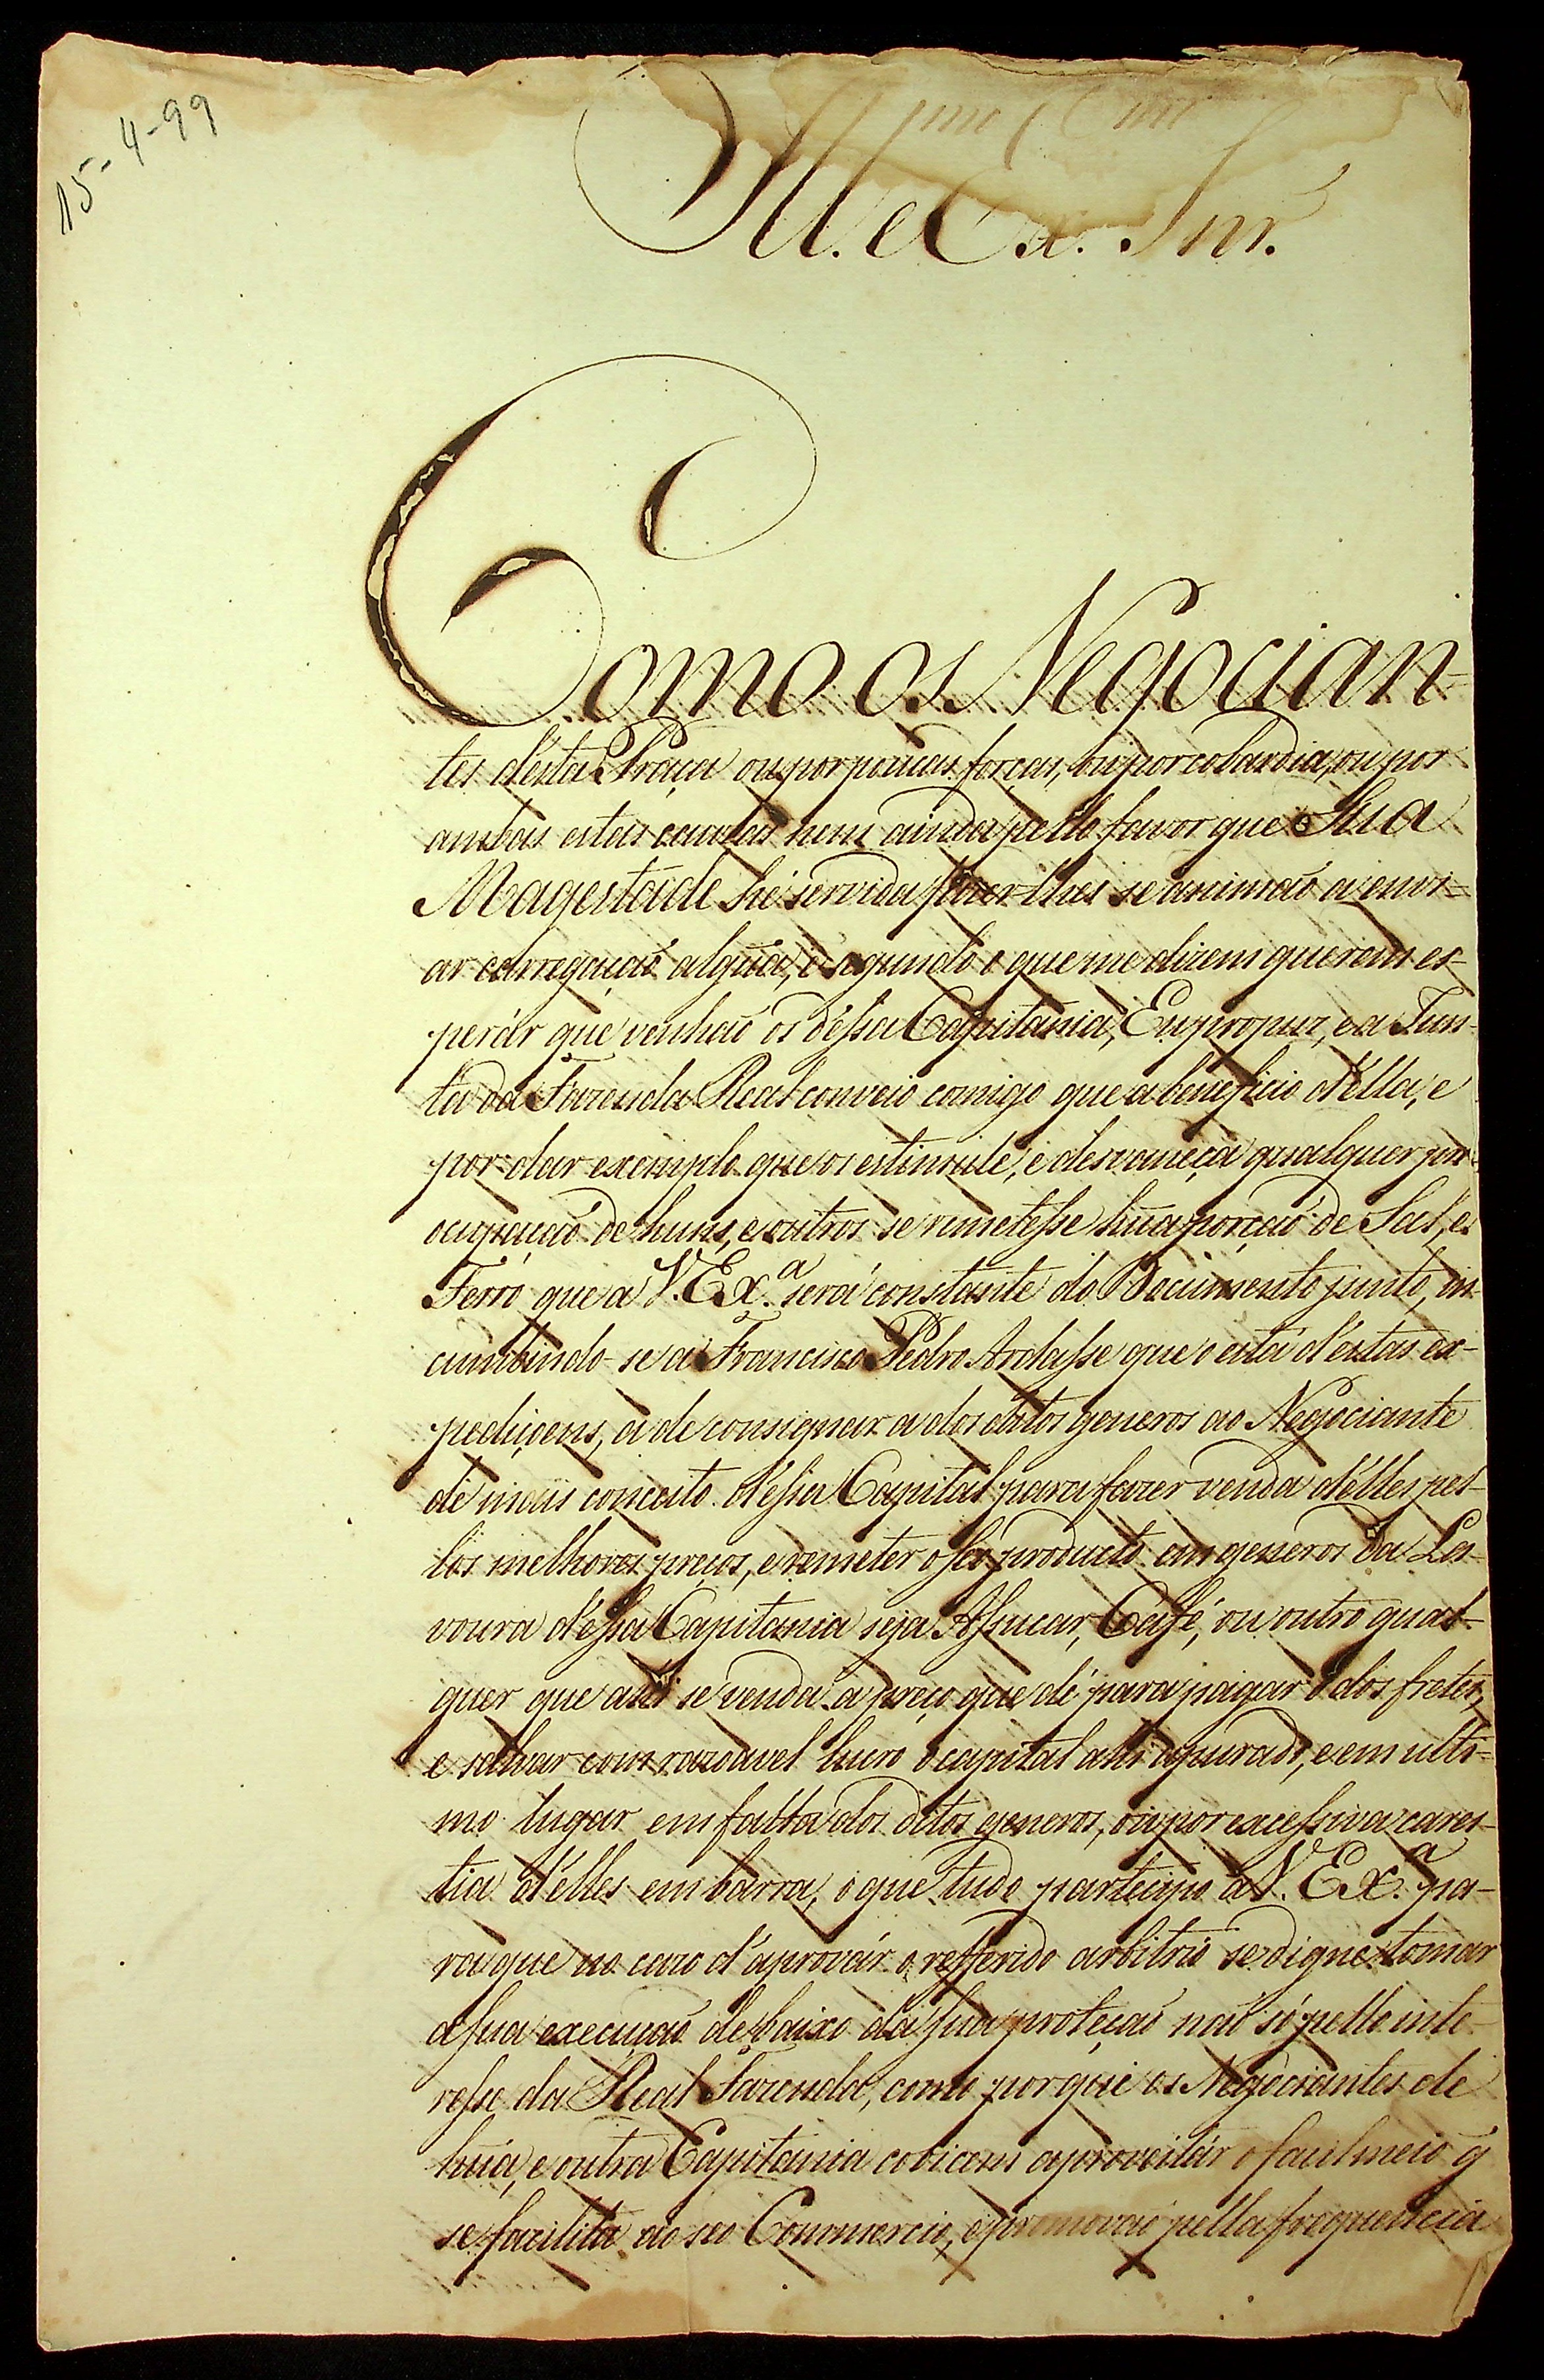 15-4-99
Ill. e Ex. Snr.
Como os Negocian=
tes désta Praça ou por poucas forças, ou por cobardia, ou por
ambas estas cauzas nem ainda pello favor que Sua
Magestade hé servida fazer-lhes se animaõ a envi=
ar carregaçaõ algũa, e segundo o que me dizem querem es-
perár que venhaõ os déssa Capitania, Eu propuz, e a Jun-
ta da Fazenda Real conveio comigo que a beneficio d'élla, e
por dar exemplo que os estimule, e desvaneça qualquer pre
ocupaçaõ de huns, e outros se remetesse hũa porçaõ de Sal, e
Ferro que a V. Ex.ª será constante do Documento junto, in-
cumbindo-se a Francisco Pedro Ardasse que o está d'éstas ex-
pediçoens, a de consignar a dos ditos generos ao Negociante
de mais conceito d'éssa Capital para fazer venda d'élles pel-
los melhores preços, e remeter o seo producto em generos da La-
voura d'éssa Capitania seja Assucar, Café, ou outro qual-
quer que ahi se venda a preço que dé para pagar o dos fretes,
e salvar com razoavel lucro o capital ahi apurado, e em ulti=
mo lugar em falta dos ditos generos, ou por excessiva cares-
tia d'élles em barra, o que tudo participo a V. Ex.ª pa-
ra que no cazo d'aprovár o refferido arbitrio se digne tomar
a sua execuçaõ debaixo da sua proteçaõ naõ só pello inte-
resse da Real Fazenda, como porque os Negociantes de
hũa, e outra Capitania cobicem aproveitár o facil meio q̃
se facilita ao seo Commercio, e promovaõ pella frequencia